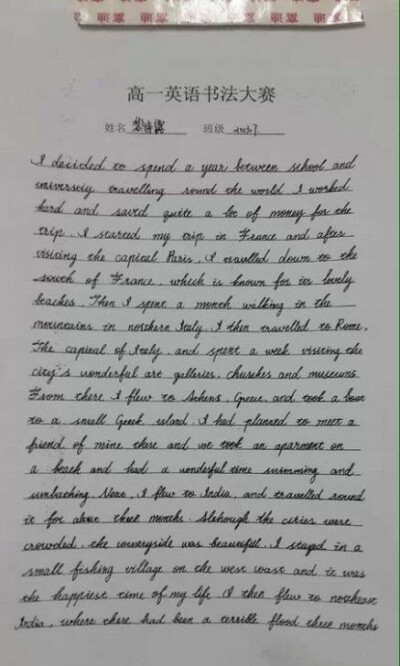 高一英语书法大赛
姓名 班级
I decided to spend a year between school and
university travelling round the world. I worked
hard and saved quite a lot of money for the
trip. I started my trip in France and after
visiting the capital Paris, I travelled down to the
south of France, which is known for its lovely
beaches. Then I spent a month walking in the
mountains in northern Italy. I then travelled to Rome,
The capital of Italy, and spent a week visiting the
city's wonderful art galleries, churches and museums
From there I flew to Athens, Greece, and took a boat
to a small Greek island. I had planned to meet a
friend of mine there and we took an aparment on
a beach and had a wonderful time swimming and
sunbathing. Next, I flew to India, and travelled round
it for about three months. Although the cities were
crowded, the countryside was beautiful. I stayed in a
small fishing village on the west coast and it was
the happiest time of my life. I then flew to northeast
India, where there had been a terrible flood three months